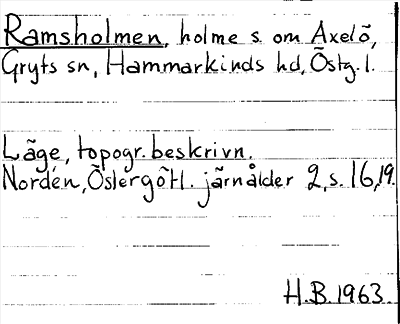 Ramsholmen, holme s. om Axelö,
Gryts sn, Hammarkinds hd, Östg. l.
Läge, topogr. beskrivn.
Nordén, Östergötl. järnålder 2, s. 16, 19.
H.B. 1963